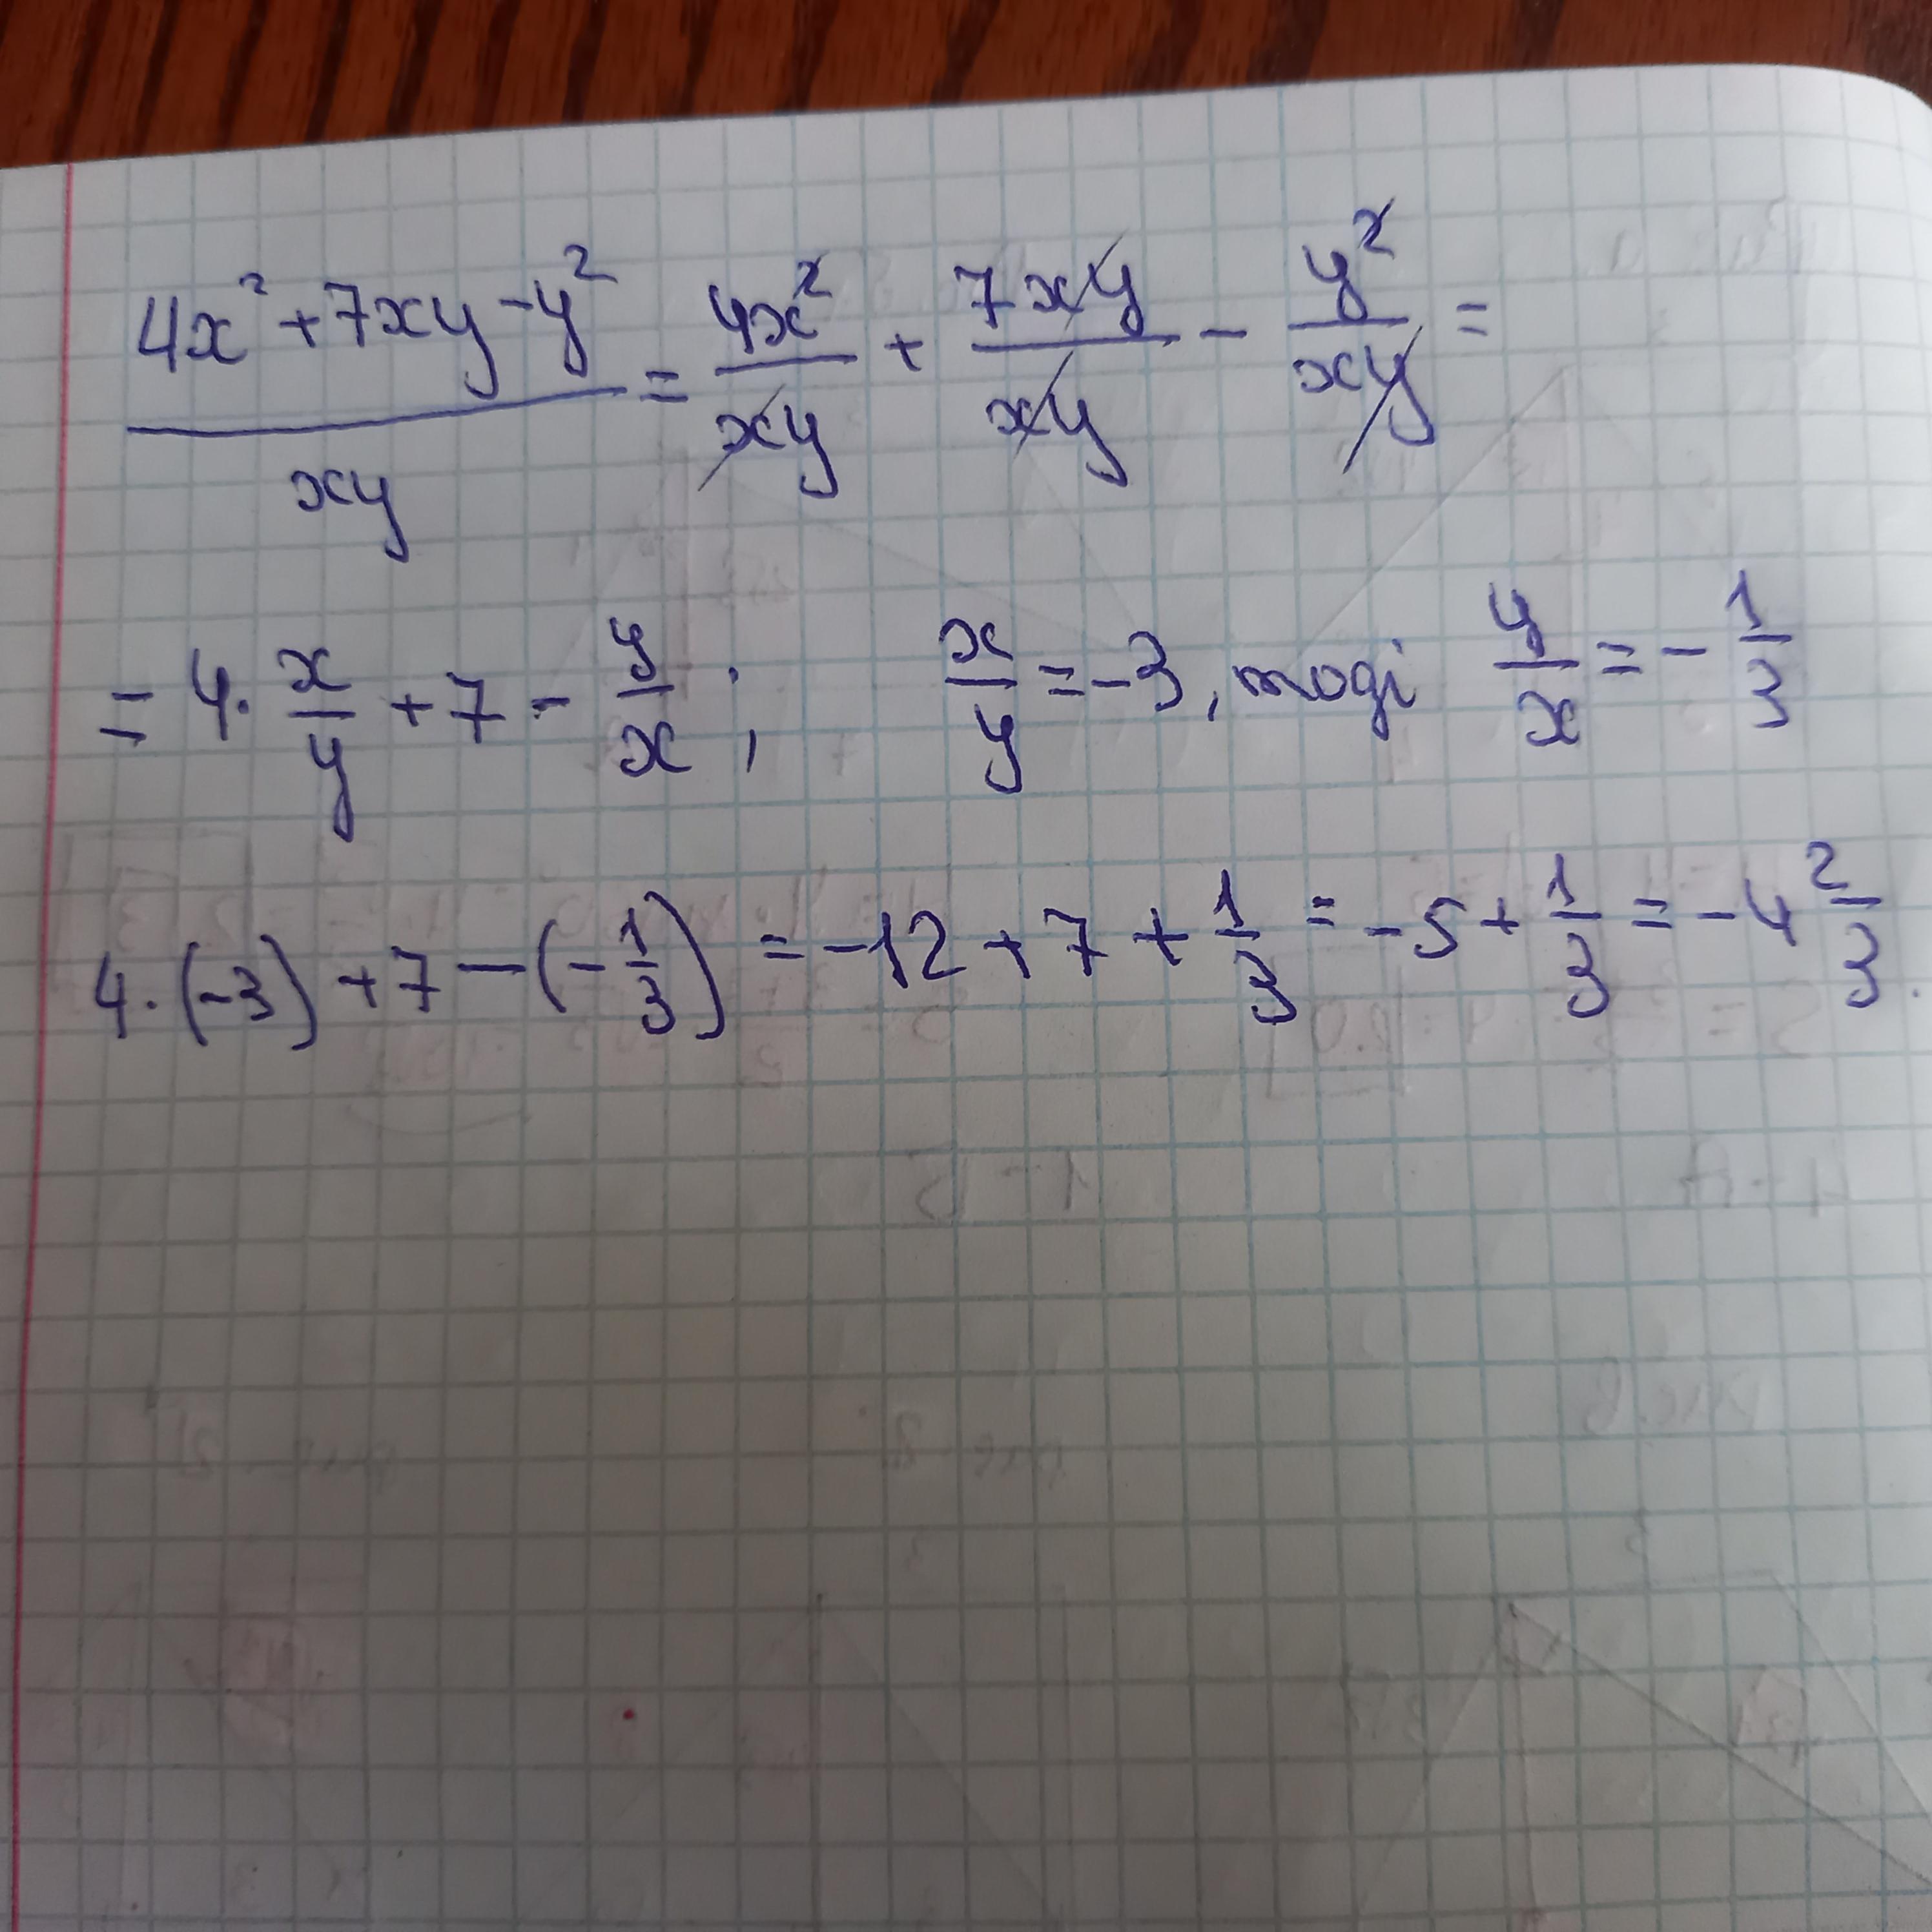 (4x²+7xy-y²)/(xy) = 4x²/xy + 7xy/xy - y²/xy =
= 4·x/y + 7 - y/x ; x/y = -3, тоді y/x = -1/3
4·(-3)+7-(-1/3) = -12+7+1/3 = -5+1/3 = -4 2/3.